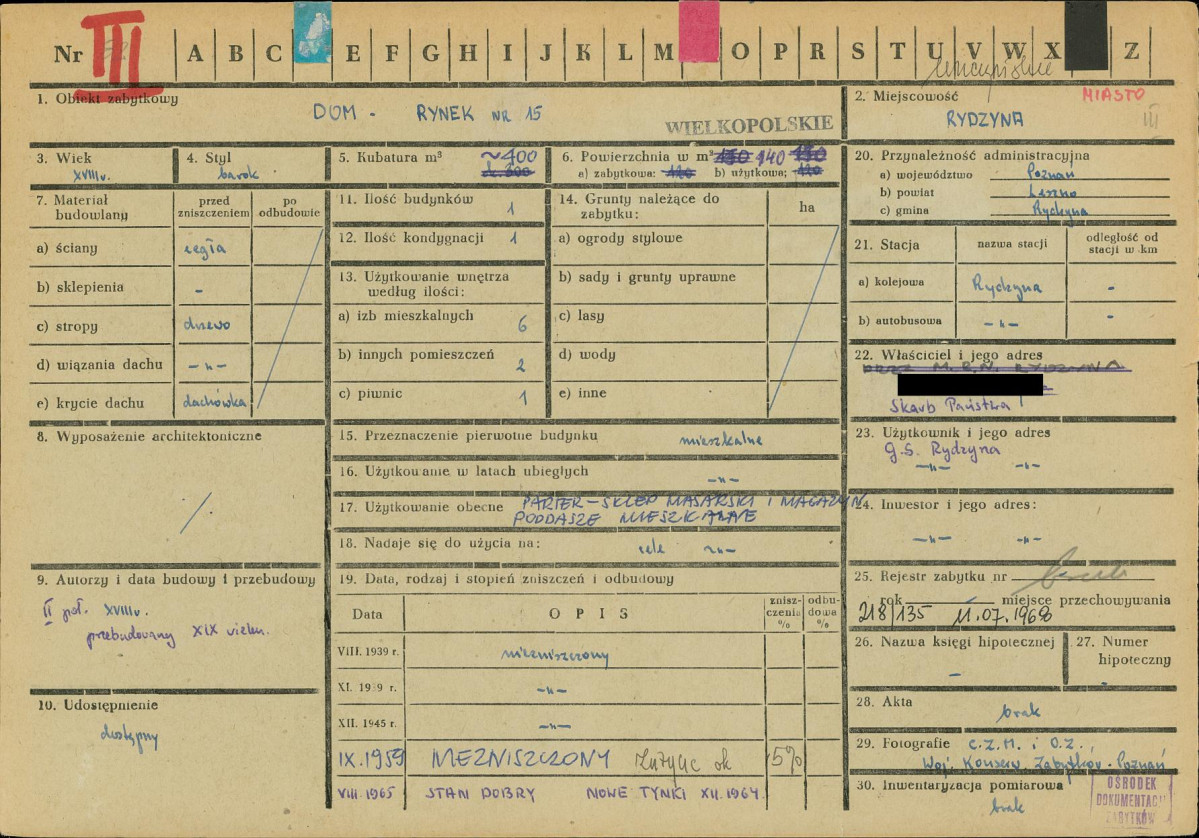 Nr III A B C E F G H I J K L M O P R S T U V W X Z
1. Obiekt zabytkowy
DOM - RYNEK NR 15
WIELKOPOLSKIE
2. Miejscowość
MIASTO
RYDZYNA
III
3. Wiek
XVIII w.
4. Styl
barok
5. Kubatura m³
~400
6. Powierzchnia w m² 140
a) zabytkowa: 120 b) użytkowa:
7. Materiał budowlany
przed zniszczeniem
po odbudowie
a) ściany cegła
b) sklepienia -
c) stropy drzewo
d) wiązania dachu -"-
e) krycie dachu dachówka
8. Wyposażenie architektoniczne
/
9. Autorzy i data budowy i przebudowy
II poł. XVIII w.
przebudowany XIX wieku.
10. Udostępnienie
dostępny
11. Ilość budynków 1
12. Ilość kondygnacji 1
13. Użytkowanie wnętrza
według ilości:
a) izb mieszkalnych 6
b) innych pomieszczeń 2
c) piwnic 1
14. Grunty należące do
zabytku:
ha
a) ogrody stylowe
b) sady i grunty uprawne
c) lasy
d) wody
e) inne
15. Przeznaczenie pierwotne budynku mieszkalne
16. Użytkowanie w latach ubiegłych -"-
17. Użytkowanie obecne PARTER - SKLEP MASARSKI I MAGAZYN,
PODDASZE MIESZKALNE
18. Nadaje się do użycia na: cele -"-
19. Data, rodzaj i stopień zniszczeń i odbudowy
Data
OPIS
zniszczenia %
odbudowa %
VIII. 1939 r. niezniszczony
XI. 1939 r. -"-
XII. 1945 r. -"-
IX.1959 NIEZNISZCZONY zużycie ok 5%
VIII 1965 STAN DOBRY NOWE TYNKI XII.1964.
20. Przynależność administracyjna
a) województwo Poznań
b) powiat Leszno
c) gmina Rydzyna
21. Stacja
nazwa stacji
odległość od stacji w km
a) kolejowa Rydzyna -
b) autobusowa -"- -
22. Właściciel i jego adres
PREZ. M.R.N. RYDZYNA
Skarb Państwa
23. Użytkownik i jego adres
G.S. Rydzyna
-"- -"-
24. Inwestor i jego adres:
-"- -"-
25. Rejestr zabytku nr
rok miejsce przechowywania
218/135 11.07.1968
26. Nazwa księgi hipotecznej
-
27. Numer hipoteczny
-
28. Akta
brak
29. Fotografie C.Z.M. i O.Z.,
Woj. Konserw. Zabytków - Poznań
30. Inwentaryzacja pomiarowa
brak
OŚRODEK
DOKUMENTACJI
ZABYTKÓW